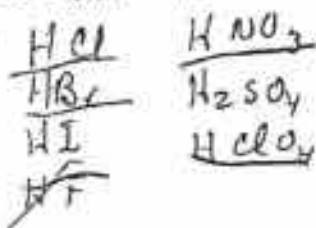 HCl
HBr
HI
HF
HNO3
H2SO4
HClO4